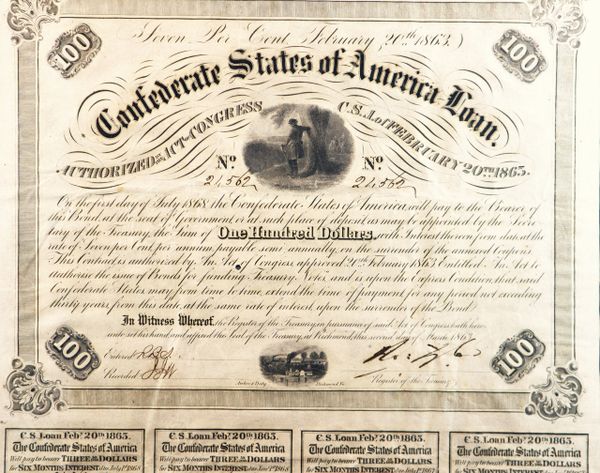 (Seven Per Cent February 20th 1863.)
100
100
Confederate States of America Loan.
AUTHORIZED BY ACT OF CONGRESS
C.S.A. of FEBRUARY 20TH 1863.
No
No
24,562
24,562
On the first day of July 1868 the Confederate States of America will pay to the Bearer of
this Bond, at the seat of Government, or at such place of deposit as may be appointed by the Secre-
tary of the Treasury, the Sum of One Hundred Dollars, with Interest thereon from date at the
rate of Seven per Cent per annum payable semi annually on the surrender of the annexed Coupons.
This Contract is authorized by An Act of Congress approved 20th February 1863 Entitled An Act to
authorize the issue of Bonds for funding Treasury Notes, and is upon the Express Condition, that said
Confederate States may from time to time, extend the time of payment for any period not exceeding
thirty years, from this date at the same rate of interest upon the surrender of the Bond.
In Witness Whereof, the Register of the Treasury, in pursuance of said Act of Congress hath here-
unto set his hand and affixed the Seal of the Treasury, at Richmond, this second day of March 1863
100
100
Entered
Recorded
Register of the Treasury
Richmond, Va.
C.S. Loan Feby. 20th 1863.
The Confederate States of America
Will pay to bearer THREE 50/100 DOLLARS
for SIX MONTHS INTEREST due July 1st 1868
C.S. Loan Feby. 20th 1863.
The Confederate States of America
Will pay to bearer THREE 50/100 DOLLARS
for SIX MONTHS INTEREST due Jan. 1st 1868
C.S. Loan Feby. 20th 1863.
The Confederate States of America
Will pay to bearer THREE 50/100 DOLLARS
for SIX MONTHS INTEREST
C.S. Loan Feby. 20th 1863.
The Confederate States of America
Will pay to bearer THREE 50/100 DOLLARS
for SIX MONTHS INTEREST